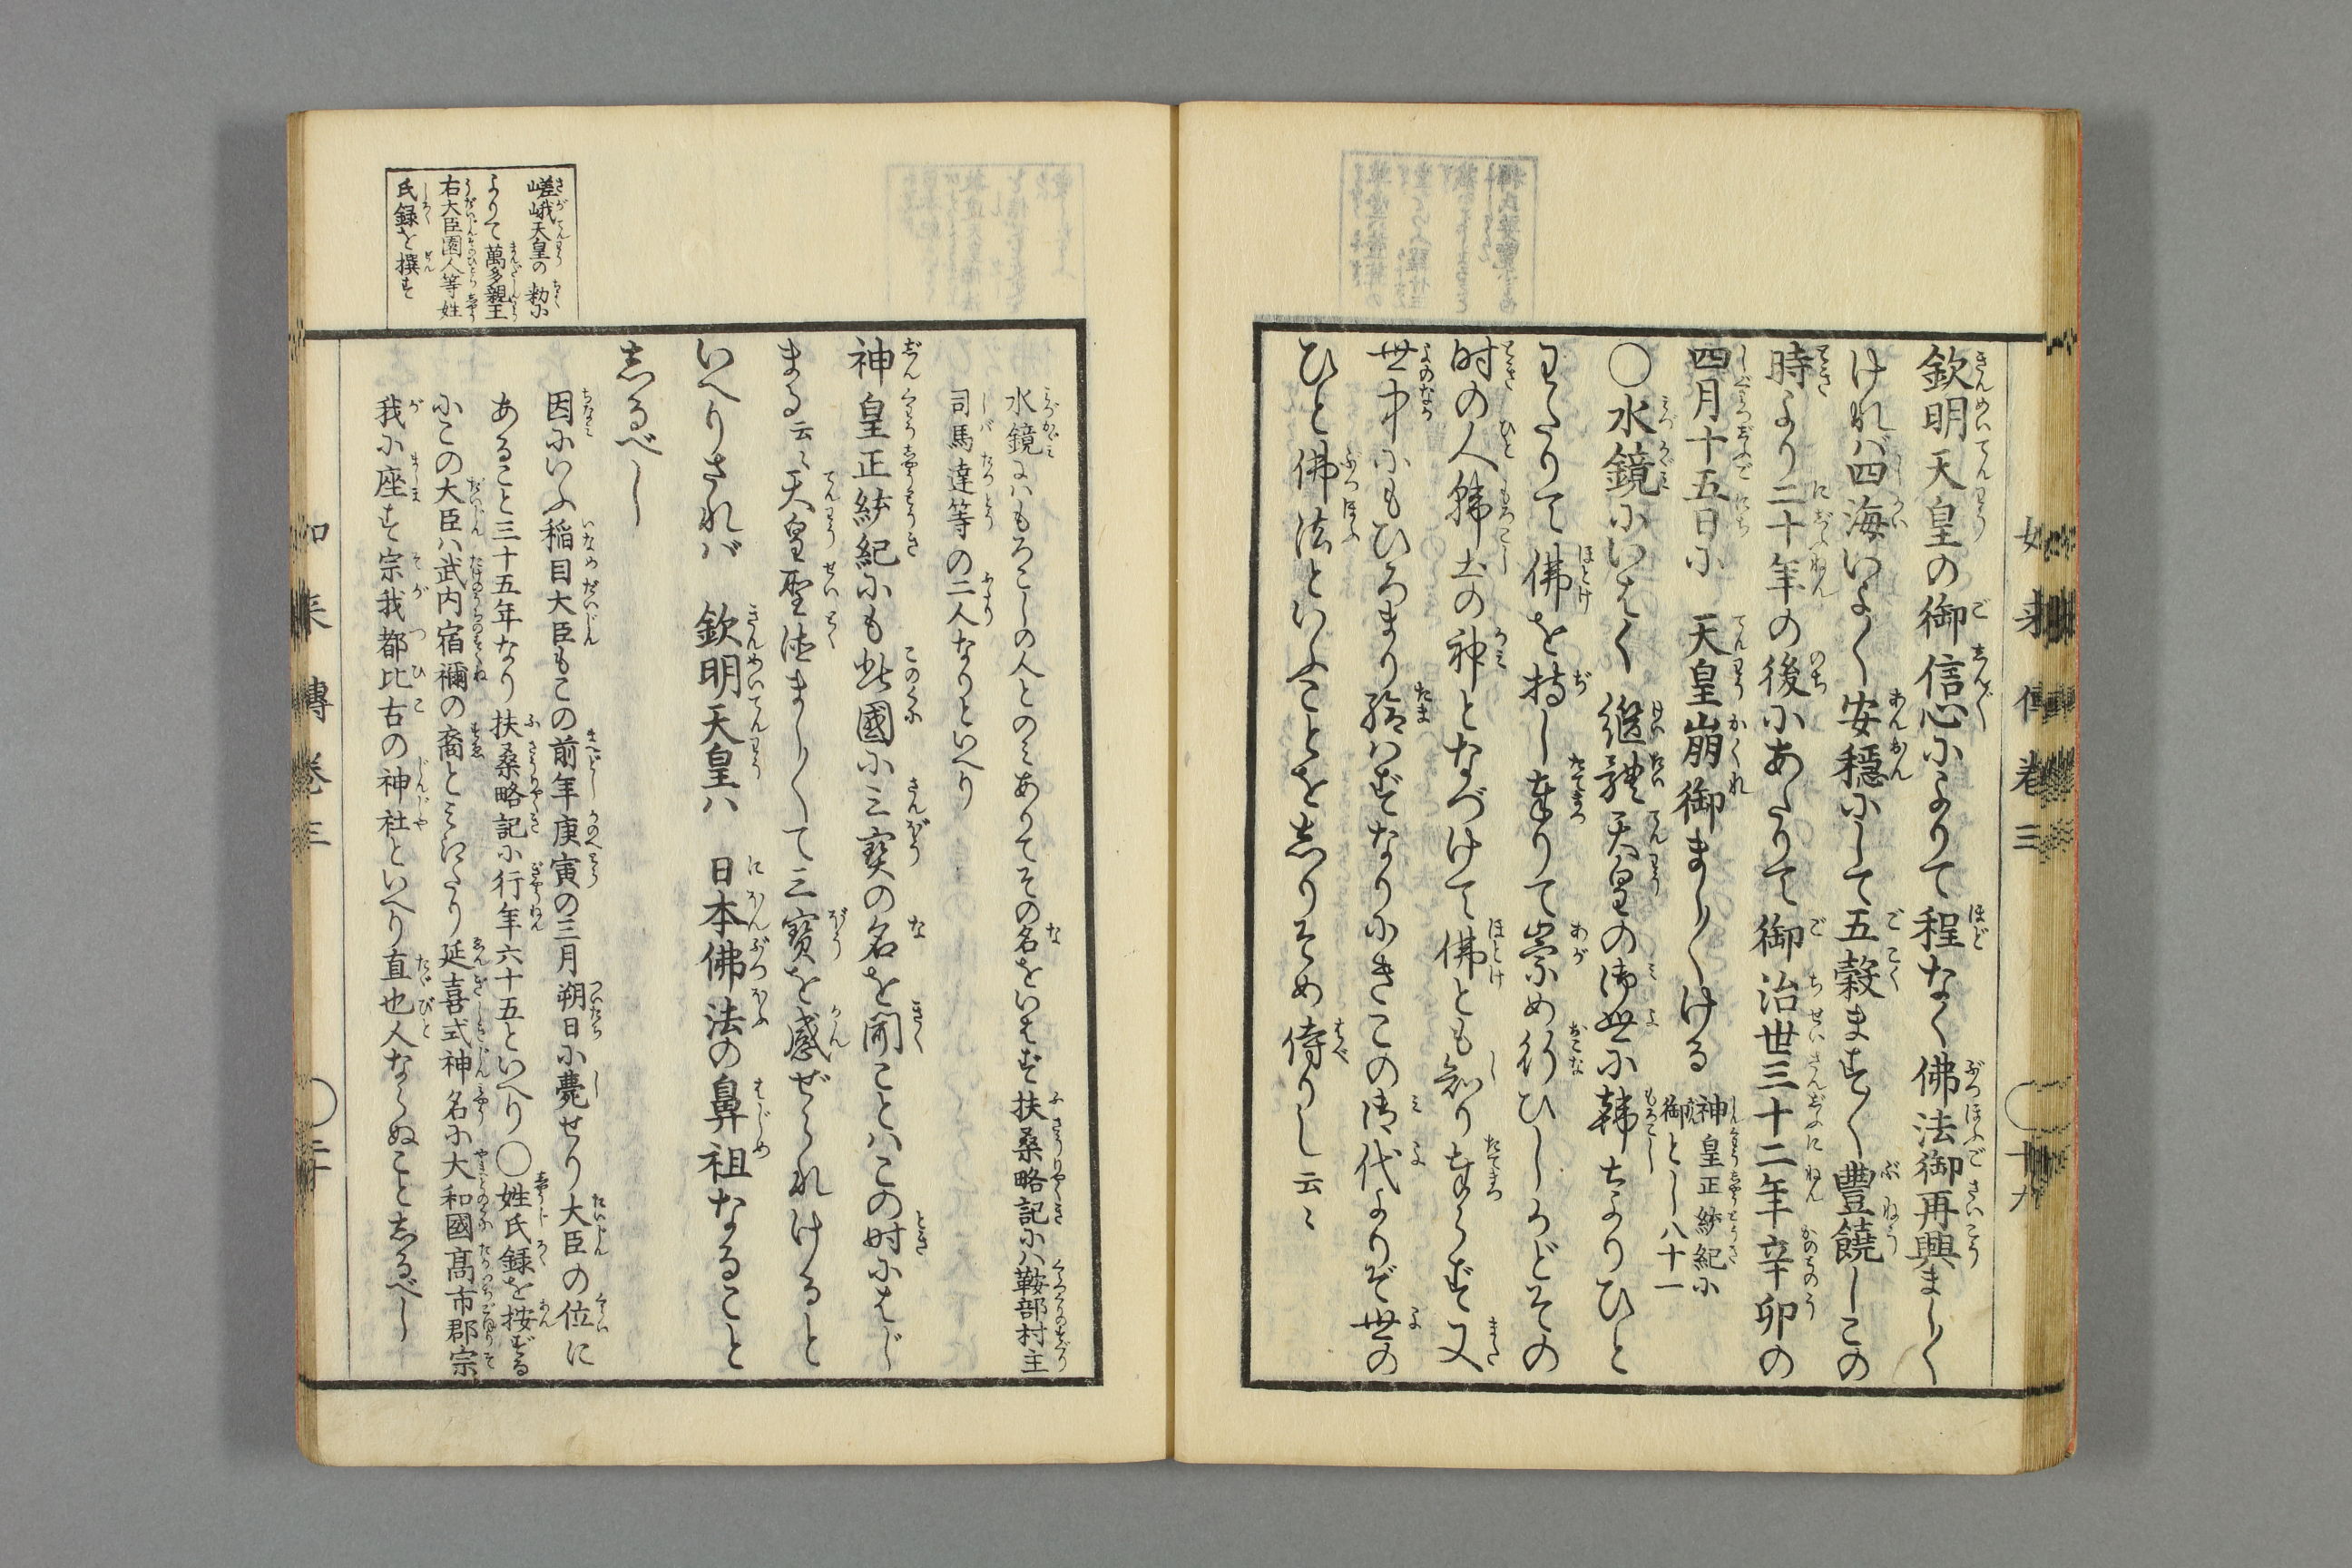 欽明天皇の御信心によりて程なく佛法御再興まし〳〵
ければ四海いよ〳〵安穏にして五穀ます〳〵豊饒しこの
時より二十年の後にあたりて御治世三十二年辛卯の
四月十五日に 天皇崩御まし〳〵ける
神皇正統紀に
御とし八十一
○水鏡にいはく 継體天皇の御世に韓土よりひと
わたりて佛を持し奉りて崇め行ひしかどその
时の人韓土の神となづけて佛とも知り奉らず又
世中にもひろまり給はずなりにきこの御代よりぞ世の
ひと佛法といふことをしりそめ侍りし云〻
如来傳巻三
○十九
水鏡にハもろこしの人とのミありてその名をいはず扶桑略記にハ鞍部村主
司馬達等の二人なりといへり
神皇正統紀にも此國に三寶の名を聞ことハこの时にはじ
まる云〻天皇聖徳まし〳〵て三寶を感ぜられけると
いへりされバ 欽明天皇ハ 日本佛法の鼻祖なること
しるべし
因にいふ稲目大臣もこの前年庚寅の三月朔日に薨せり大臣の位に
あること三十五年なり扶桑略記に行年六十五といへり○姓氏録を按ずる
にこの大臣ハ武内宿禰の裔とミえたり延喜式神名に大和國髙市郡宗
我に座す宗我都比古の神社といへり直也人ならぬことしるべし
嵯峨天皇の勅に
よりて萬多親王
右大臣園人等姓
氏録を撰す
如来傳巻三
○二十